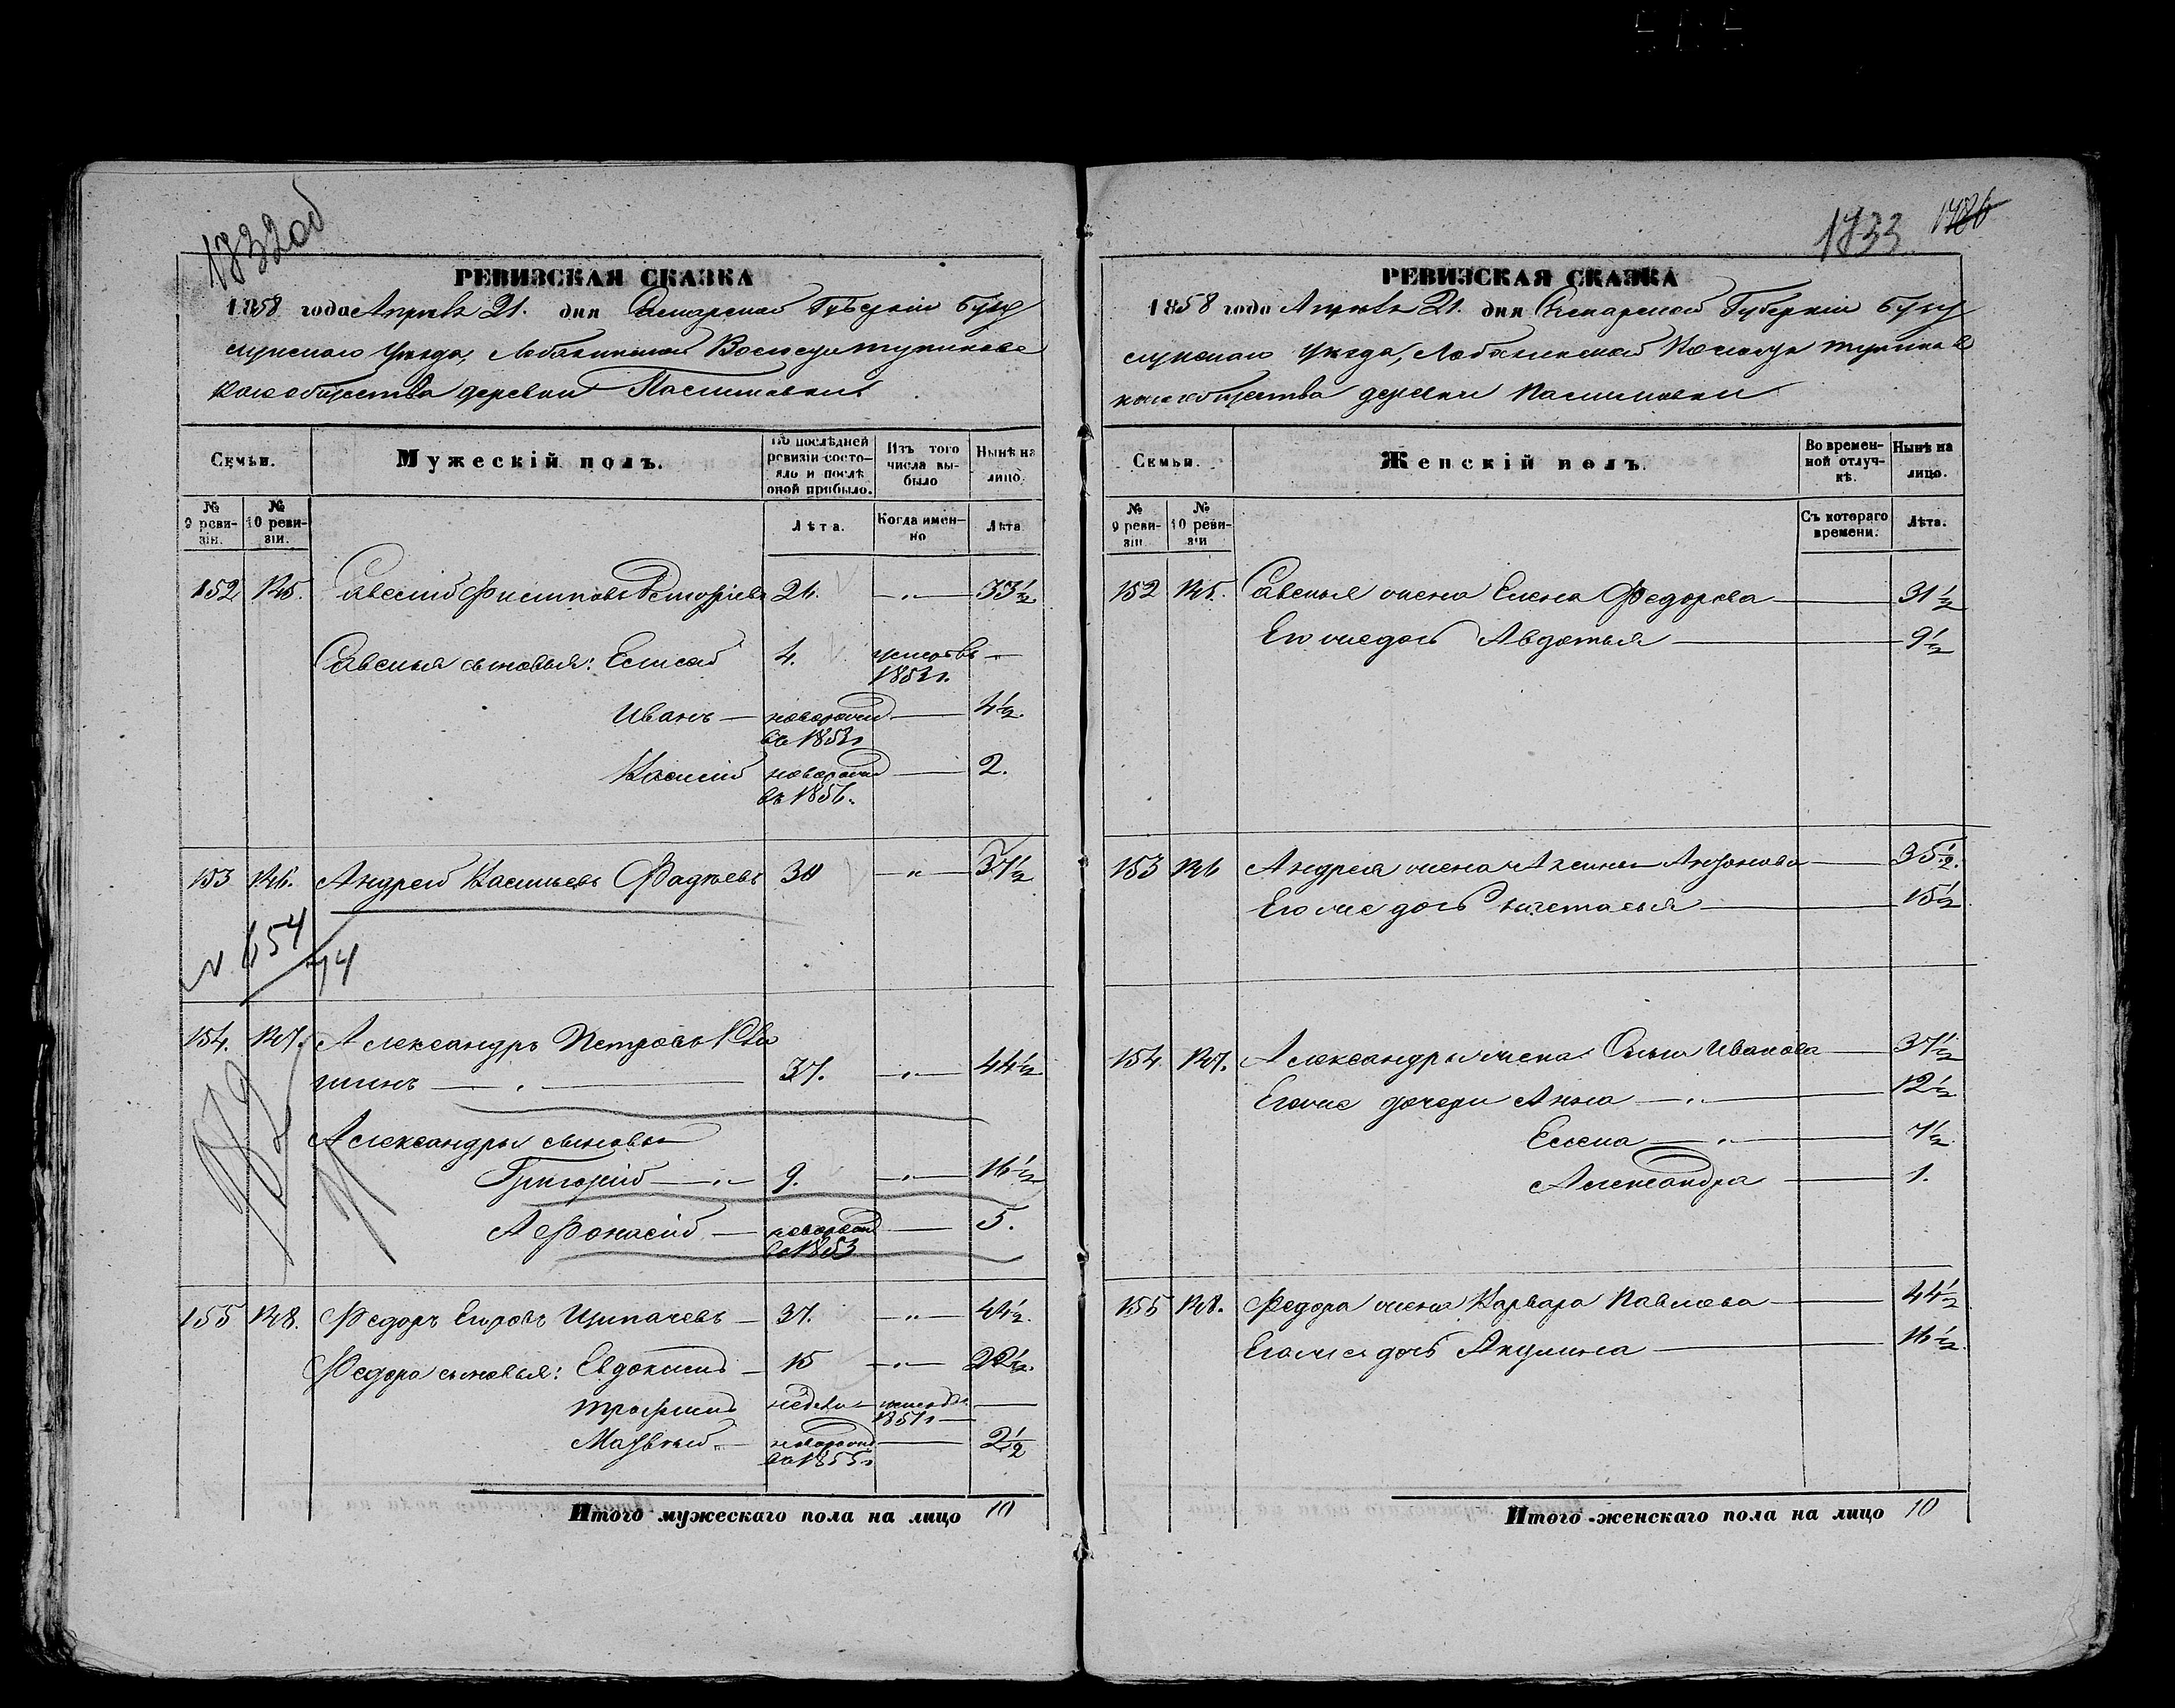 1732 об
РЕВИЗСКАЯ СКАЗКА
1858 года Апрѣля 21. дня Самарской Губерніи Бугу
скаго Уѣзда,
общества деревни
Семьи.
Мужескій полъ.
Въ послѣдней ревизіи состояло и послѣ оной прибыло.
Изъ того числа выбыло
Нынѣ на лицо.
№ 9 ревизіи.
№ 10 ревизіи.
Лѣта.
Когда именно
Лѣта
152 145. Савелій Филиповъ 26. — „ — 33½
Савелья сыновья: Елисей 4. умеръ въ 1853 г. —
Иванъ — новорожд въ 1853 г — 4½.
Василій новорожд въ 1856. — 2.
153 146. Андрей Васильевъ Фадѣевъ 30 — „ — 37½
N 654
74
154. 147. Александръ Петровъ
шинъ — „ — 37. — „ — 44½
Александры сыновья
Григорій — „ — 9. — „ — 16½
Афонасій — новорожд въ 1853 — 5.
155 148. Федоръ Егоровъ Щипачевъ — 37. — „ — 44½.
Федора сыновья: Евдокимъ — 15 — „ — 22½.
Трофимъ недѣли 1851 г —
Матвѣй „ — новорожд въ 1855 г — 2½
Итого мужескаго пола на лицо 10
1733 1786
РЕВИЗСКАЯ СКАЗКА
1858 года Апрѣля 21. дня Самарской Губерніи Бугу
скаго Уѣзда,
общества деревни
Семьи.
Женскій полъ.
Во временной отлучкѣ.
Нынѣ на лицо.
№ 9 ревизіи
№ 10 ревизіи
Съ котораго времени.
Лѣта.
152 145. Савелья жена Елена Федорова — 31½
Его же дочь Авдотья — 9½
153 146 Андрея жена Аксинья Антонова — 35½.
Его же дочь — 15½
154 147. Александры жена Ольга Иванова — 37½
Его же дочери Анна — „ — 12½
Елена — „ — 7½
Александра — 1.
155 148. Федора жена Варвара Павлова — 44½
Его же дочь Акулина — 16½
Итого женскаго пола на лицо 10